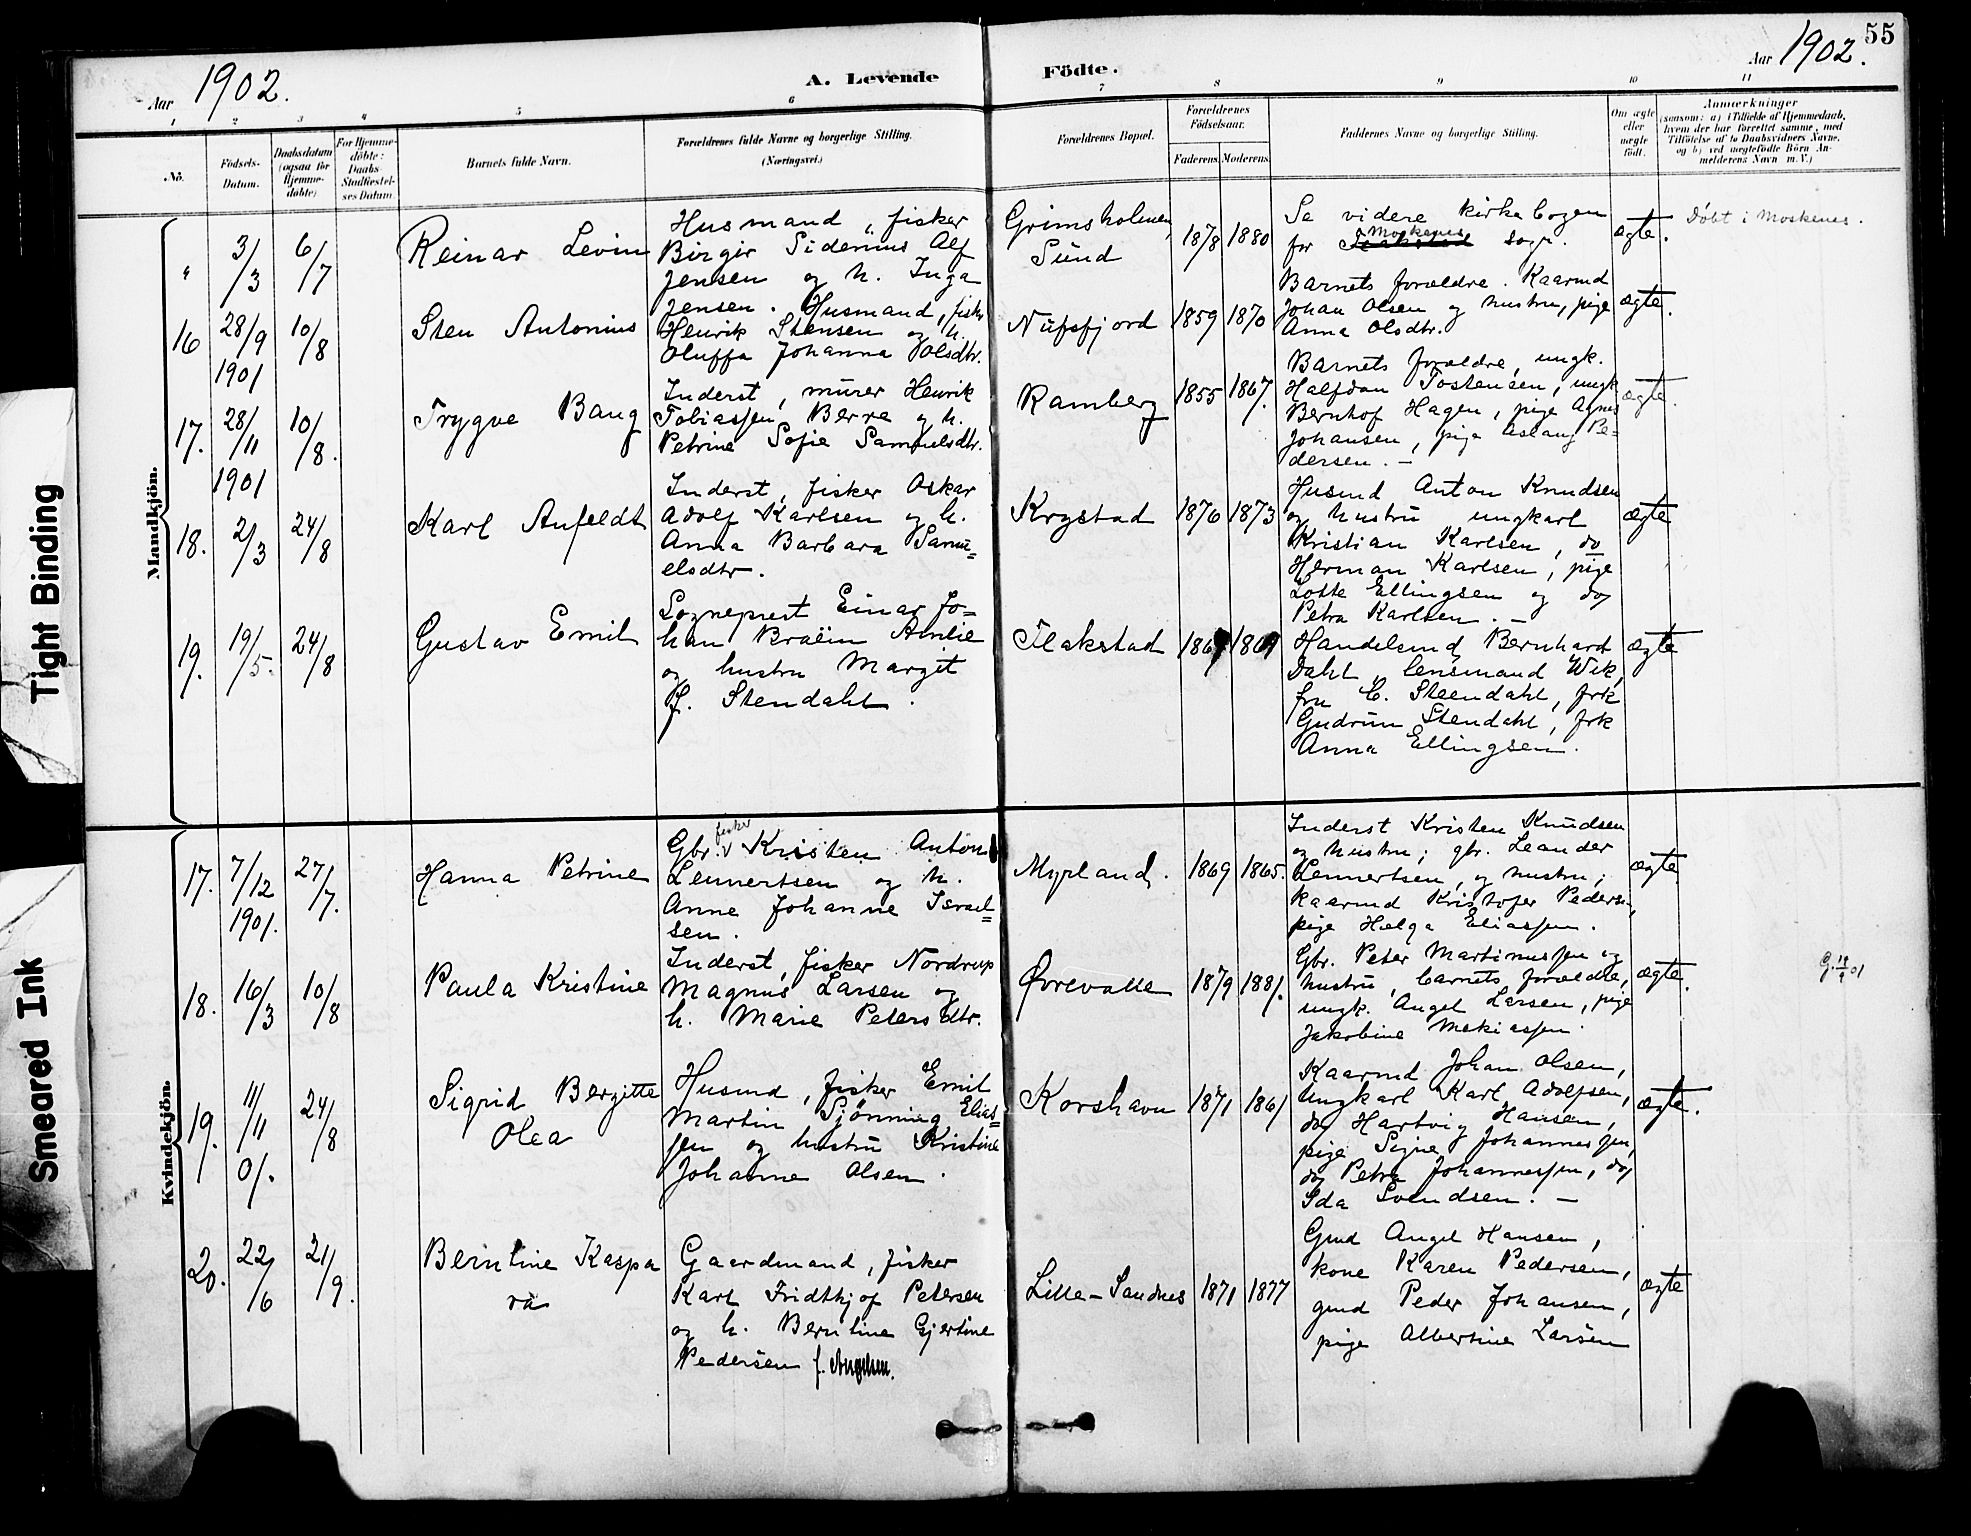 55
Aar 1902.
A. Levende Födte.
Aar 1902.
1 2 3 4 5 6 7 8 9 10 11
No.
Födsels-Datum.
Daabsdatum (ogsaa for Hjemmedöbte)
For Hjemmedöbte: Daabs-Stadfæstelses Datum
Barnets fulde Navn.
Forældrenes fulde Navne og borgerlige Stilling. (Næringsvei.)
Forældrenes Bopæl.
Forældrenes Födselsaar.
Faderens. Moderens.
Faddernes Navne og borgerlige Stilling.
Om ægte eller uægte födt.
Anmærkninger
(saasom: a) i Tilfælde af Hjemmedaab,
hvem der har forrettet samme, med
Tilföielse af to Daabsvidners Navne,
og b) ved uægtefödte Börn Anmelderens Navn m. V.)
Mandkjön.
" 3/3 6/7
Reinar Levin
Husmand, fisker
Birger Sidenius Alf
Jensen og h. Inga
Jensen.
Grimsholmen,
Sund
1878 1880
Se videre kirkebogen
for Moskenes sogn.
ægte.
Döbt i Moskenes.
16 28/9 1901 10/8
Sten Antonius
Husmand, fisker
Henrik Stensen og h.
Oluffa Johanna Olsdtr.
Nufsfjord
1859 1870
Barnets forældre. Kaarmd
Johan Olsen og hustru, pige
Anna Olsdtr.
ægte.
17. 28/11 1901 10/8.
Trygve Bang
Inderst, murer Henrik
Tobiassen Berre og h.
Petrine Sofie Samuelsdtr.
Ramberg
1855 1867.
Barnets forældre, ungk.
Halfdan Tostensen, ungk
Bernhof Hagen, pige Agnes
Johansen, pige Aslaug Pe=
dersen. –
ægte.
18. 2/3 24/8
Karl Anfeldt
Inderst, fisker Oskar
Adolf Karlsen og h.
Anna Barbara Samu=
elsdtr.
Krystad
1876 1873
Husmd Anton Knudsen
og hustru ungkarl
Kristian Karlsen, do
Herman Karlsen, pige
Lotte Ellingsen og do
Petra Karlsen. –
ægte
19. 19/5. 24/8
Gustav Emil
Sogneprest Einar Jo=
han Amlie
og hustru Margit
f. Stendahl.
Flakstad
Handelsmd Bernhard
Dahl, lensmand Wik,
fru C. Steendahl, frk
Gudrun Stendahl, frk
Anna Ellingsen.
ægte
Kvindekjön.
17. 7/12 1901. 27/7.
Hanna Petrine
Gbr. fisker Kristen Anton
Lennertsen og h.
Anne Johanne Israel=
sen.
Myrland.
1869 1865.
Inderst Kristen Knudsen
og hustru; gbr. Leander
Lennertsen, og hustru;
kaarmd Kristofer Pedersen,
pige Helga Eliassen.
ægte
18. 16/3 10/8
Paula Kristine
Inderst, fisker Nordrup
Magnus Larsen og
h. Marie Petersdtr.
Ørevalle
1879 1881.
Gbr. Peter Martinussen og
hustru, barnets forældre,
ungk. Angel Larsen, pige
Jakobine
ægte.
19. 11/11 01. 24/8
Sigrid Bergitte
Olea
Husmd, fisker Emil
Martin Sjönning Elias=
sen og hustru Kristine
Johanne Olsen.
Korshavn
1871 1861
Kaarmd Johan Olsen,
Ungkarl Karl Adolfsen,
do Hartvig Hansen,
pige Signe Johannessen,
do Petra Johannessen, do
Ida Svendsen. –
ægte.
20. 22/6 21/9.
Berntine Kaspa
ra
Gaardmand, fisker
Karl Fridthjof Petersen
og h. Berntine Gjertine
Pedersen f. Angelsen.
Lille-Sandnes
1871 1877
Gmd Angel Hansen,
kone Karen Pedersen,
gmd Peder Johansen,
pige Albertine Larsen
ægte
Tight Binding
Smeared Ink